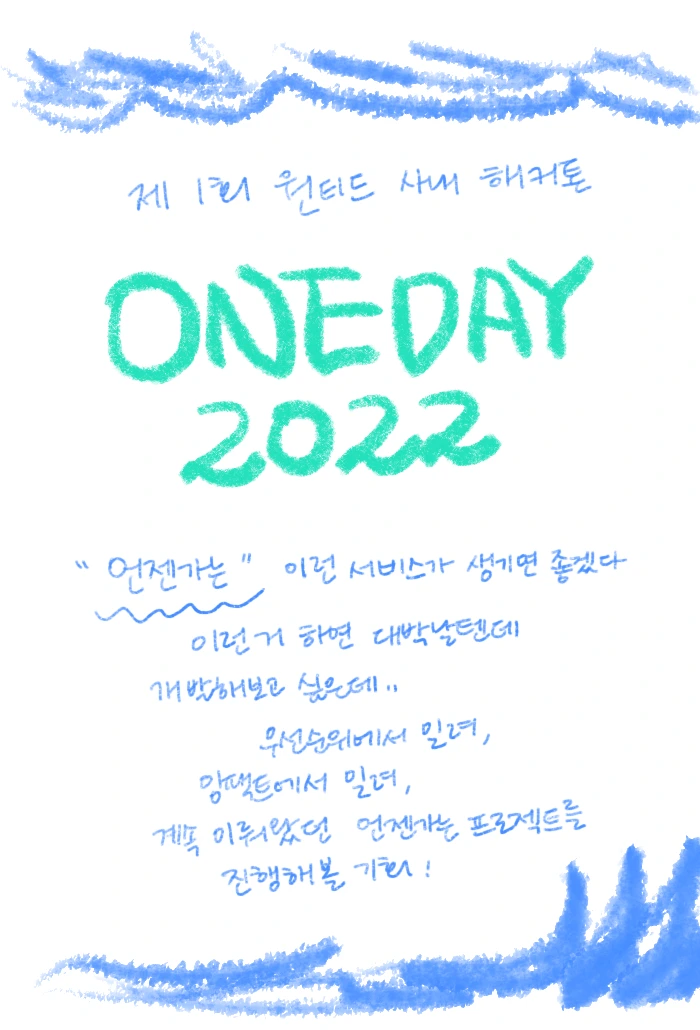 제 1회 원티드 사내 해커톤
ONEDAY
2022
"언젠가는" 이런 서비스가 생기면 좋겠다
이런거 하면 대박날텐데
개발해보고 싶은데..
우선순위에서 밀려,
임팩트에서 밀려,
계속 미뤄왔던 언젠가는 프로젝트를
진행해볼 기회!